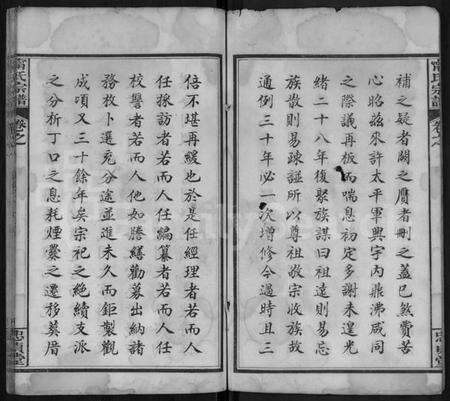 富氏宗譜
卷之
補之疑者闕之贗者刪之蓋已煞費苦
心昭茲來許太平軍興宇內鼎沸咸同
之際議再板而喘息初定多謝未遑光
緒二十八年復聚族謀曰祖遠則易忘
族散則易疎誣所以尊祖敬宗收族故
通例三十年必一次增修今過時且三
倍不堪再緩也於是任經理者若而人
任採訪者若而人任編纂者若而人任
校讐者若而人他如謄繕勸募出納諸
務枚卜選充分途並進未久而鉅製觀
成頃又三十餘年矣宗祀之絕續支派
之分析丁口之息耗煙爨之遷移墓厝
氏宗譜
卷之
堂